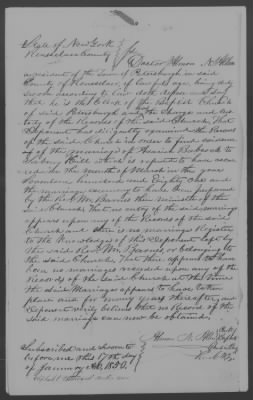 State of New York
Rensselaer County } ss
Doctor Hiram N. Allen
a resident of the Town of Petersburgh in said
County of Rensselaer, of lawful age, being duly
sworn according to law doth depose and say
that he is the Clerk of the Baptist Church
of said Petersburgh and the charge and cus
tody of the Records of the said Church. That
Deponent has diligently examined the Records
of the said Church in order to find evidence
of the marriage of Hubbard to
Hill which is reputed to have occur
red in the month of March in the year
Seventeen hundred and Eighty and
the marriage ceremony to have been performed
by the Revd Wm then minister of the
said Church. That no entry of the said marriage
appears upon any of the Records of the said
Church and there is no marriage Register
to the Knowledge of this Deponent left by
the said Revd Wm or belonging to
the said Church. That there appears to have
been no marriages record upon any of the
Records of the said Church at the time
the said Marriage appears to have taken
place and for many years thereafter, and
Deponent verily believes that no Record of the
said marriage can now be obtained.
Hiram N. Allen
Subscribed and sworn to
before me this 17th day
of January AD. 1850.